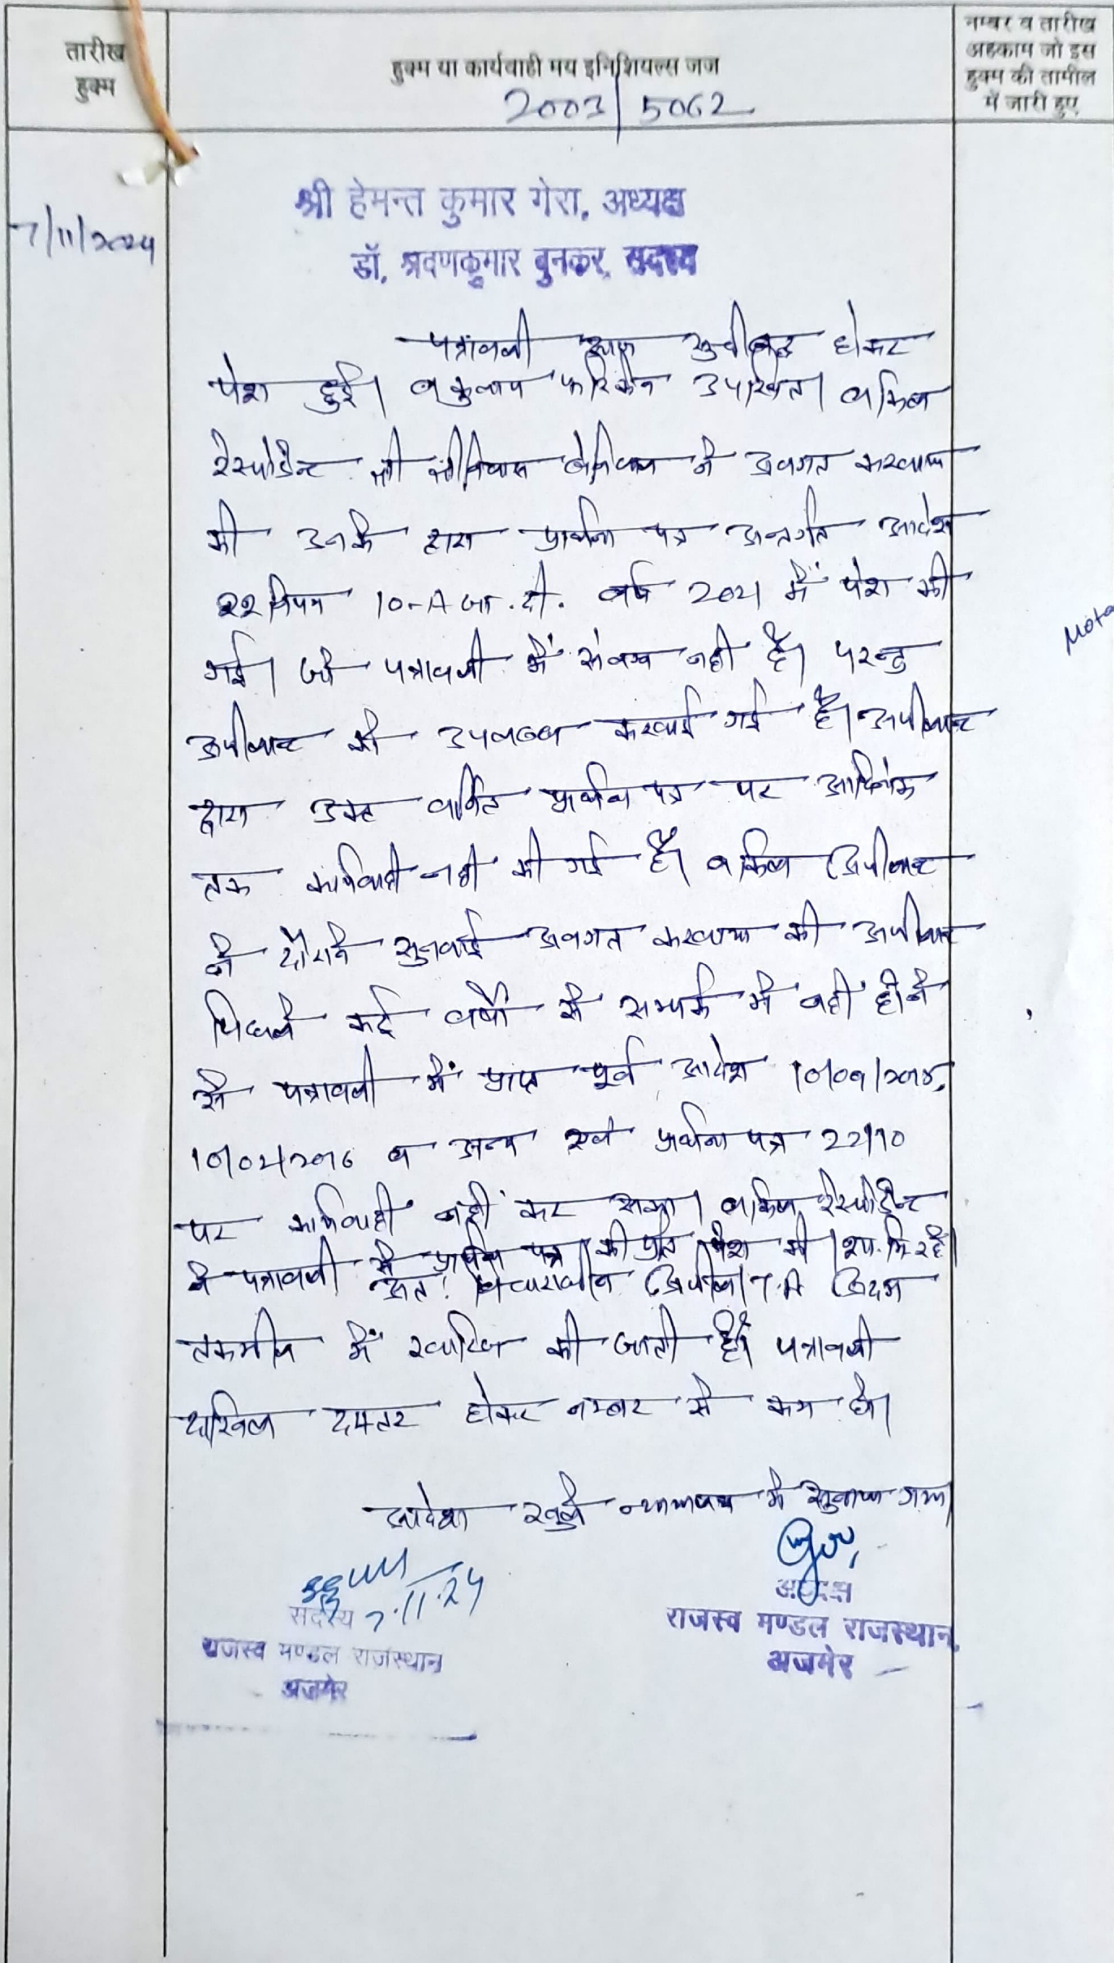 तारीख हुक्म
हुक्म या कार्यवाही मय इनिशियल्स जज
नम्बर व तारीख अहकाम जो इस हुक्म की तामील में जारी हुए
2003/5062
7/11/2024
श्री हेमन्त कुमार गेरा, अध्यक्ष
डॉ. श्रवणकुमार बुनकर, सदस्य
पत्रावली आज सुचीबद्ध होकर
पेश हुई। वकुलाय फरिकेन उपस्थित। वकिल
रेस्पोंडेन्ट श्री ने अवगत करवाया
की उनके द्वारा प्रार्थना पत्र अन्तर्गत आदेश
22 नियम 10-A जा.दी. वर्ष 2021 में पेश की
गई। जो पत्रावली में संलग्न नहीं है। परन्तु
अपीलान्ट को उपलब्ध करवाई गई है। अपीलान्ट
द्वारा उक्त वर्णित प्रार्थना पत्र पर आदिनांक
तक कार्यवाही नहीं की गई है। वकिल अपीलान्ट
ने दौराने सुनवाई अवगत करवाया की अपीलान्ट
पिछले कई वर्षों से सम्पर्क में नहीं होने
से पत्रावली में प्राप्त पूर्व आदेश
व अन्य एवं प्रार्थना पत्र 22/10
पर कार्यवाही नहीं कर सका। वकिल रेस्पोंडेन्ट
ने पत्रावली में प्रार्थना पत्र की प्रति पेश की। शा.मि. रहे।
अतः विचाराधीन अपील अदम
तकमील में खारिज की जाती है। पत्रावली
दाखिल दफ्तर होकर नम्बर से कम हो।
आदेश खुले न्यायालय में सुनाया गया।
7.11.24
सदस्य
राजस्व मण्डल राजस्थान
अजमेर
अध्यक्ष
राजस्व मण्डल राजस्थान,
अजमेर